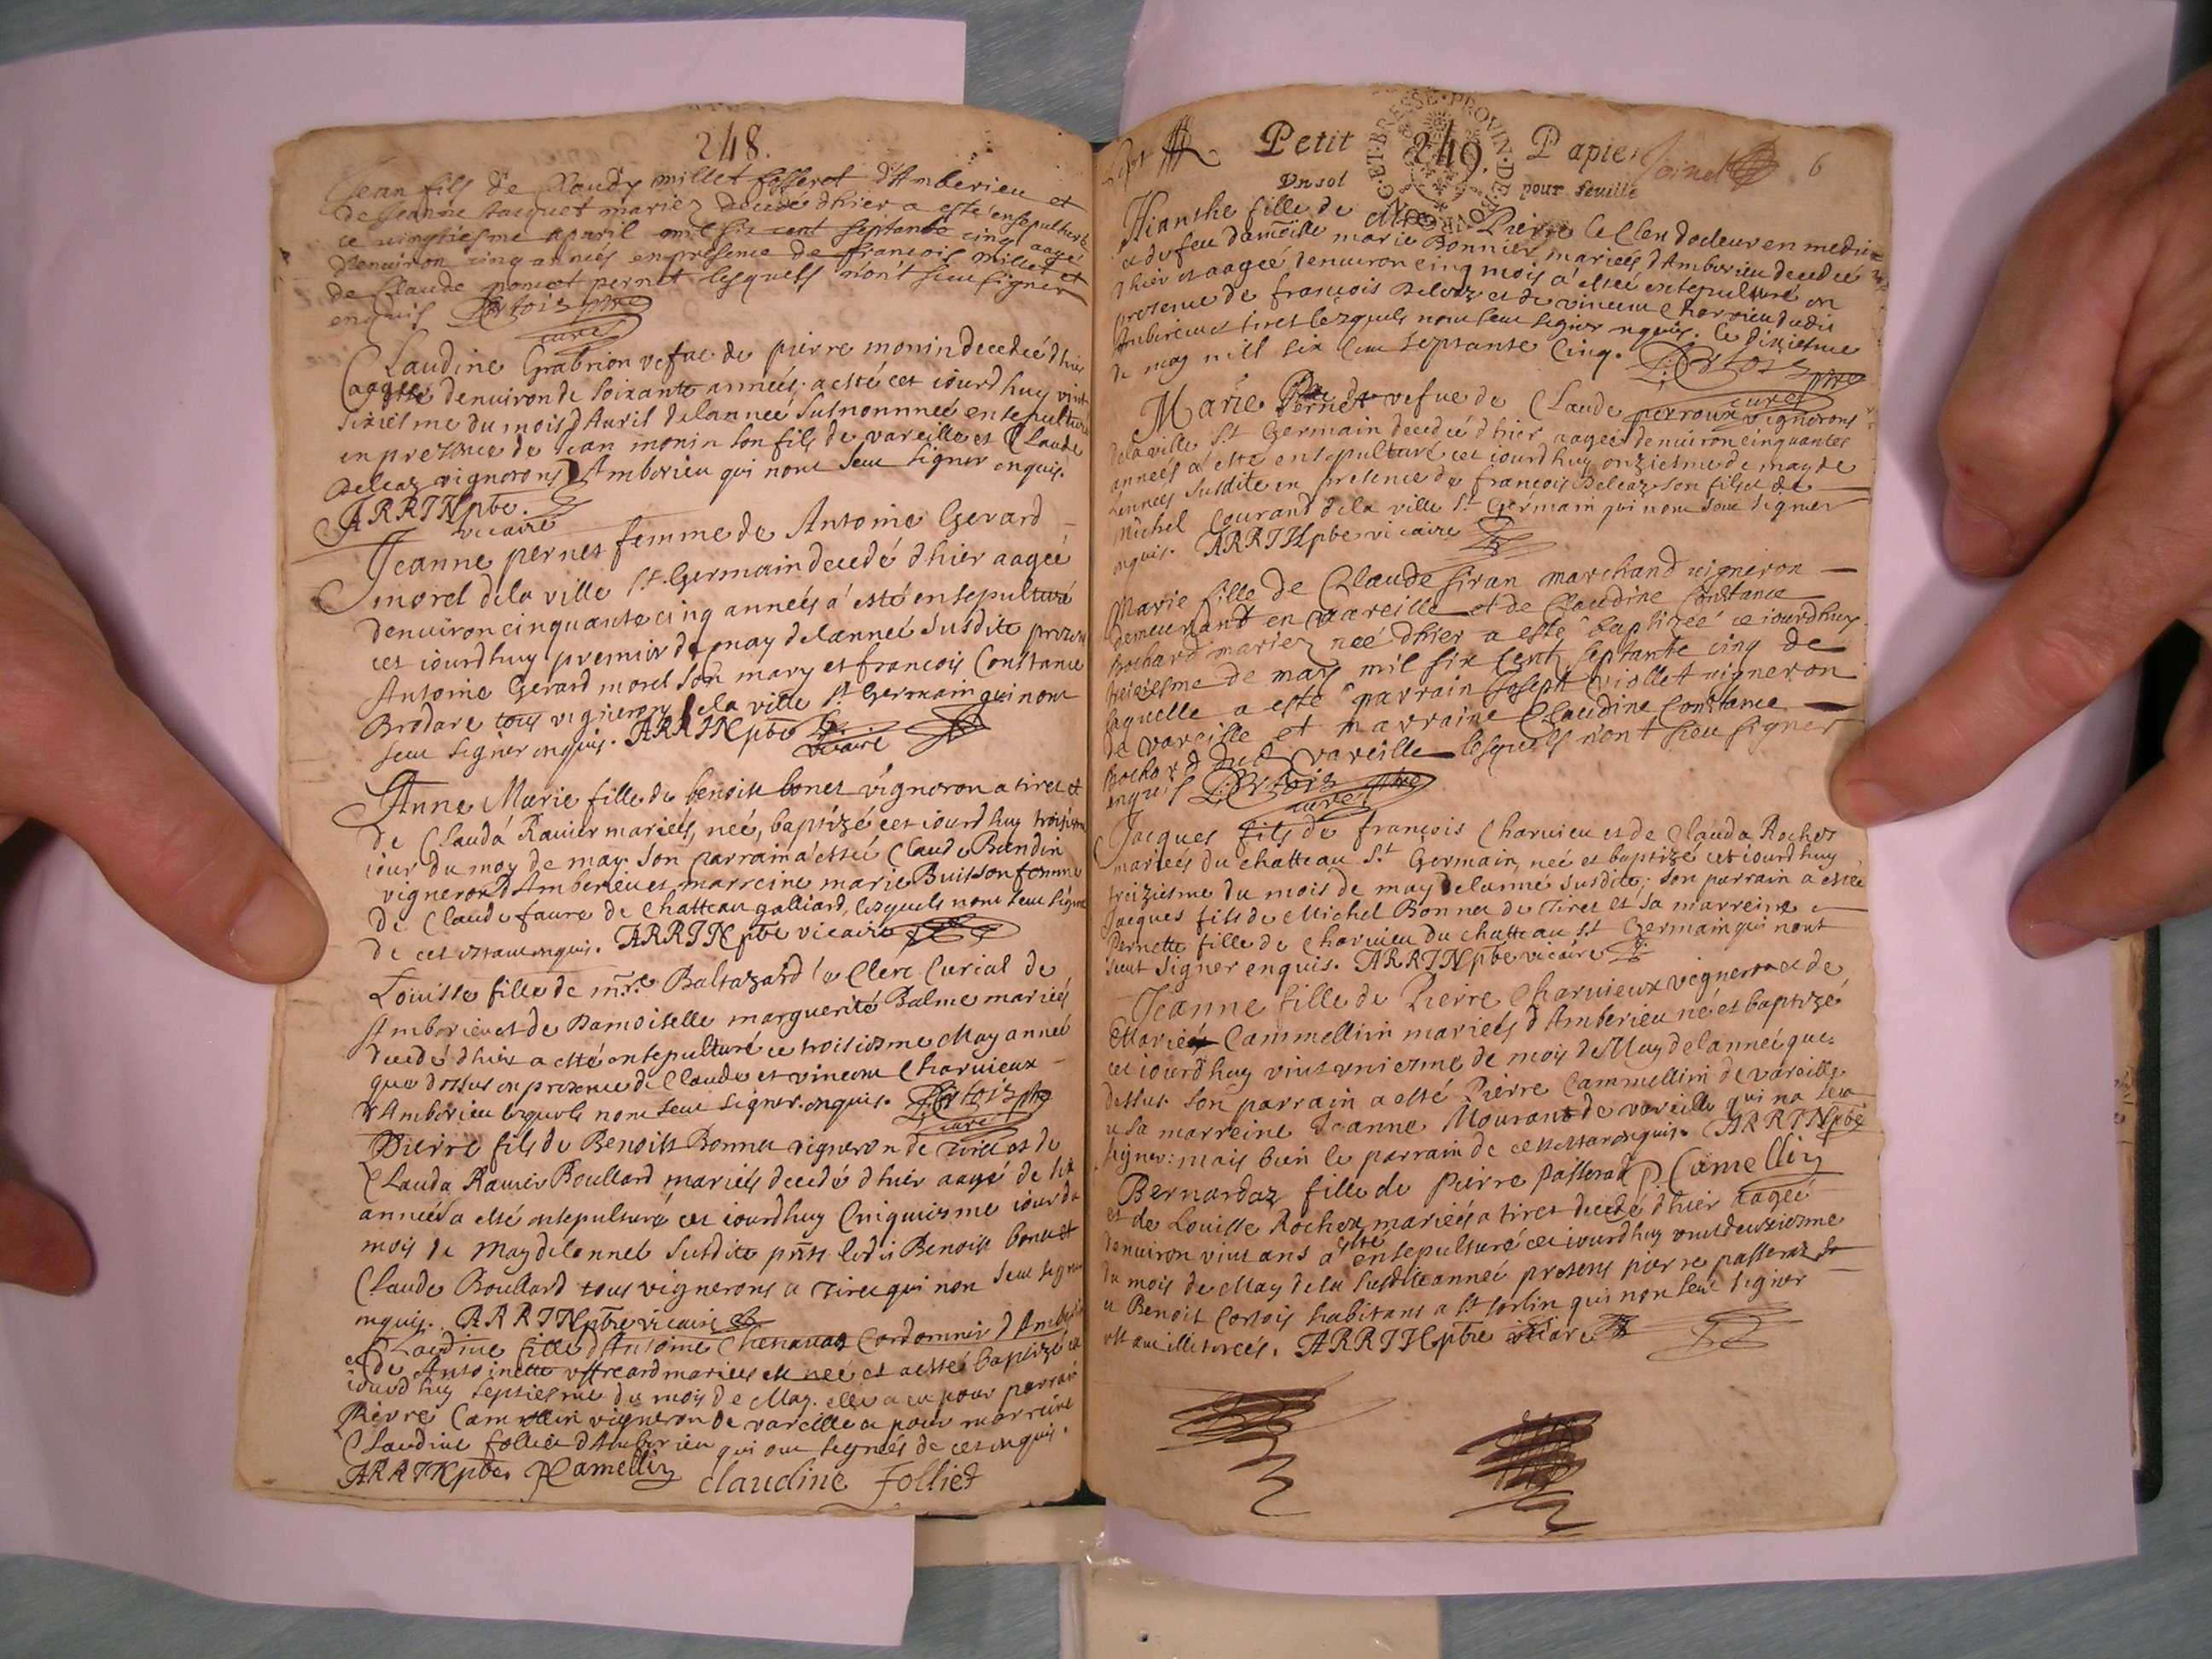 248.
Jean fils de Claudy millet fosseret d'Amberieu et
de Jeanne Jacquet mariez decedé dhier a esté ensepulturé
ce vingtiesme apvril mil six cent septante cinq aagé
d'environ cinq années en presence de francois millet et
de Claude pernet lesquels n'ont sceu signer
enquis Bertois pbre
curé
Claudine Grabrion vefue de pierre monin decedeé dhier
aageé denuiron de soixante anneés a esté cet iourdhuy vint
sixiesme du mois d'Auril de lanneé susnommeé ensepulturé
en presence de Jean monin son fils de vareille et Claude
Deleaz vignerons d'Amberieu qui nont seu signer enquis.
JARRIN pbe.
vicaire
Jeanne pernet femme de Antoine Gerard
morel de la ville St Germain decedé dhier aageé
denuiron cinquante cinq anneés a esté ensepulturé
cet iourdhuy premier de may de lanneé susdite present
Antoine Gerard morel son mary et francois Constance
Brodare tous vignerons de la ville St Germain qui nont
seu signer enquis. JARRIN pbe
vicaire
Anne Marie fille de benoist bonet vigneron a tiret et
de Clauda Rauier marieés, neé, baptizé cet iourdhuy troisiesme
iour du moy de may son parrain a esté Claude Bondin
vigneron d'Amberieu et marreine marie Buisson femme
de Claude faure de chatteau galliard, lesquels nont seu signer
de cet enquis. JARRIN pbe vicaire
Louisse fille de mre Baltazard le Clerc Curial de
Amberieu et de Damoiselle marguerite Balme marieés
decedé dhier a esté ensepulturé ce troisiesme May anneé
que dessus en presence de Claude et vincent Charuieux
d'Amberieu lesquels nont seu signer enquis. Bertois pbre
curé
Pierre fils de Benoist Bonnet vigneron de Tiret et de
Clauda Rauier Boullard marieés decedé dhier aagé de six
anneés a esté ensepulturé cet iourdhuy Cinquiesme iour du
mois de May de lanneé susdite pnts ledit Benoist bonet et
Claude Boullard tous vignerons a Tiret qui non seu signer
enquis. JARRIN pbre vicaire
Claudine fille d'Antoine Chenauaz Cordonnier d'Amberieu
et de Antoinette marieés est neé et a esté baptizé cet
iourdhuy septiesme du mois de May. elle a eu pour parrain
Pierre Camellin vigneron de vareille a pour marreine
Claudine follict d'Amberieu qui ont signeés de cet enquis.
JARRIN pbe. P Camellin claudine Folliet
G. ET. BRESSE. PROVIN. DE. BOVRG
Petit 249. Papier 6
Vn sol pour feuille
Hianthe fille de Mre Pierre le Clerc docteur en medicine
et de feu damoiselle marie Bonnier marieés d'Amberieu decedeé
dhier et aageé denuiron cinq mois a esteé ensepulturé en
presence de françois Deleaz et de vincent Charuieu dudit
Amberieu lesquels nont seu signer enquis. Ce dixiesme
de may mill six cent septante cinq. Bertois pbre
curé
Marie Pernet vefue de Claude perroux vignerons
de la ville St Germain decedé dhier aageé denuiron cinquantes
anneés a esté ensepulturé cet iourdhuy onziesme de may de
lanneés susdite en presence de françois Deleaz son fils et de
Michel Courand de la ville St Germain qui nont seu signer
enquis. JARRIN pbe vicaire
Marie fille de Claude siran marchand vigneron
demeurant en vareille et de Claudine Constance
Bochard mariez neé dhier a esté baptizeé ce iourdhuy
treiziesme de may mil six cent septante cinq de
laquelle a esté parrain Joseph Viollet vigneron
de vareille et marraine Claudine Constance
Bochard dud vareille lesquels n'ont sceu signer
enquis Bertois pbre
curé
Jacques fils de françois Charuieu et de Clauda Rochez
marieés du chatteau St Germain, neé et baptizé cet iourdhuy
treiziesme du mois de may de lanné susdite; son parrain a esté
Jacques fils de Michel Bonnet de Tiret et sa marreine
Pernette fille de Charuieu du chatteau St Germain qui nont
seut signer enquis. JARRIN pbe vicaire
Jeanne fille de Pierre Charuieux vigneron et de
Marieé Cammellin marieés d'Amberieu né et baptizé
cet iourdhuy vint vniesme de mois de May de lanneé que
dessus. son parrain a esté Pierre Cammellin de vareille
et sa marreine Jeanne Mourand de vareille qui na seu
signer: mais bien le parrain de ce enquis. JARRIN pbe
P. Camellin
Bernardaz fille de Pierre Passerad
et de Louisse Rochez marieés a tiret decedé dhier aageé
denuiron vint ans a esté ensepulturé cet iourdhuy vint deuxiesme
du mois de May de la susdite anneé presens pierre passeraz
et Benoit Cortois habitans a St sorlin qui non seut signer
JARRIN pbre vicaire